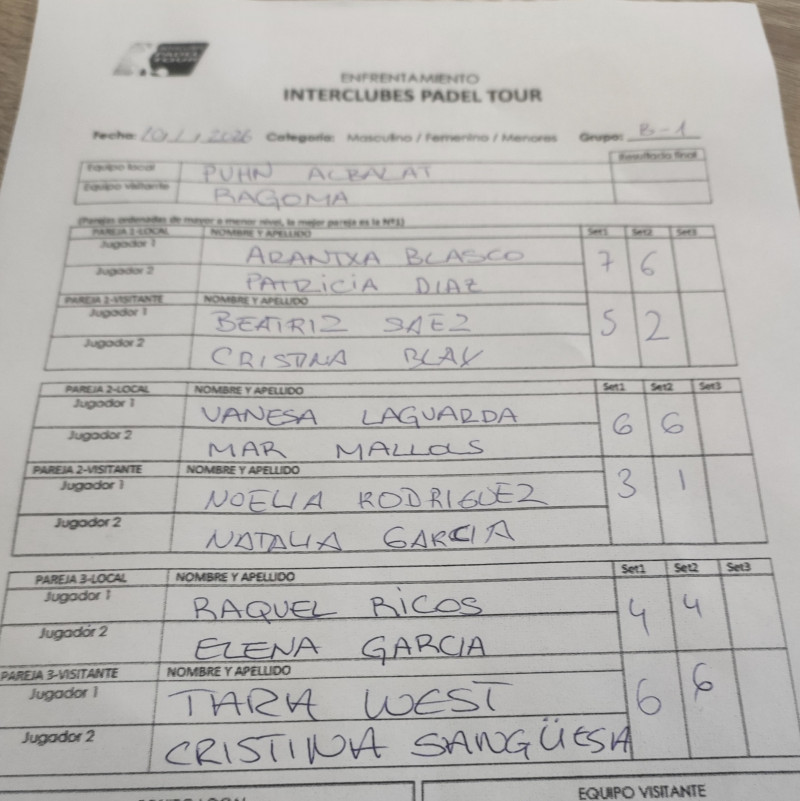 PADEL TOUR
ENFRENTAMIENTO
INTERCLUBES PADEL TOUR
Fecha: 10/1/2026 Categoria: Masculino / Femenino / Menores Grupo: B-1
Resultado final
Equipo local PUHN ALBALAT
Equipo visitante RAGOMA
(Parejas ordenadas de mayor a menor nivel, la mejor pareja es la Nº1)
PAREJA 1-LOCAL NOMBRE Y APELLIDO Set1 Set2 Set3
Jugador 1 ARANTXA BLASCO 7 6
Jugador 2 PATRICIA DIAZ
PAREJA 1-VISITANTE NOMBRE Y APELLIDO
Jugador 1 BEATRIZ SAEZ 5 2
Jugador 2 CRISTINA BLAY
PAREJA 2-LOCAL NOMBRE Y APELLIDO Set1 Set2 Set3
Jugador 1 VANESA LAGUARDA 6 6
Jugador 2 MAR MALLOLS
PAREJA 2-VISITANTE NOMBRE Y APELLIDO
Jugador 1 NOELIA RODRIGUEZ 3 1
Jugador 2 NATALIA GARCIA
PAREJA 3-LOCAL NOMBRE Y APELLIDO Set1 Set2 Set3
Jugador 1 RAQUEL RICOS 4 4
Jugador 2 ELENA GARCIA
PAREJA 3-VISITANTE NOMBRE Y APELLIDO
Jugador 1 TARA WEST 6 6
Jugador 2 CRISTINA SANGÜESA
EQUIPO LOCAL EQUIPO VISITANTE